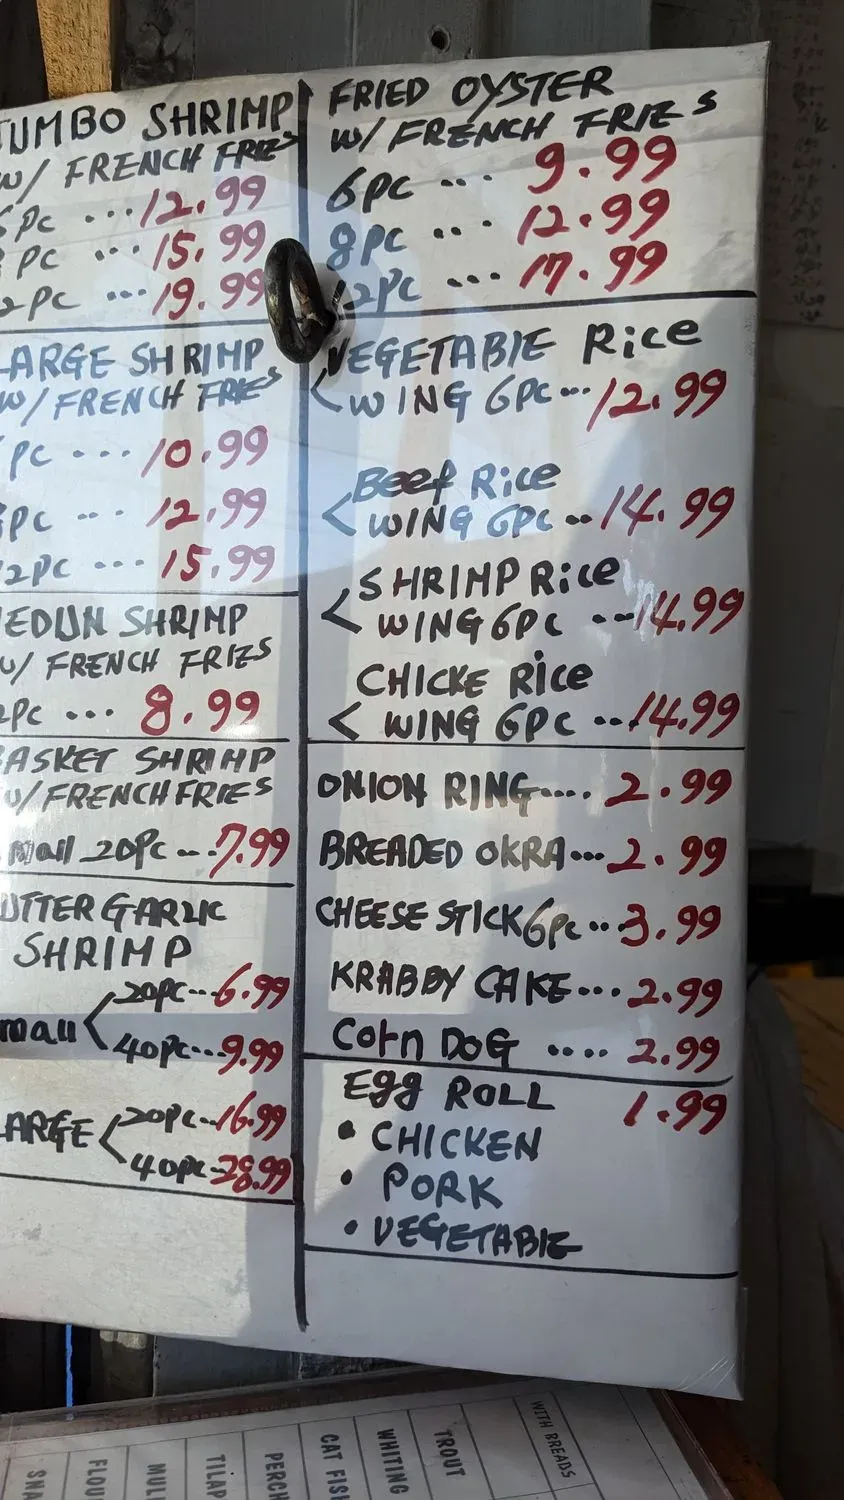 JUMBO SHRIMP
W/ FRENCH FRIES
PC ... 12.99
PC ... 15.99
2PC ... 19.99
LARGE SHRIMP
W/ FRENCH FRIES
PC .... 10.99
PC ... 12.99
2PC ... 15.99
EDIUN SHRIMP
W/ FRENCH FRIES
2PC ... 8.99
ASKET SHRIMP
W/ FRENCH FRIES
mall 20PC ... 7.99
UTTER GARLIC
SHRIMP
20PC ... 6.99
mall <
40PC ... 9.99
20PC ... 16.99
ARGE <
40PC ... 28.99
FRIED OYSTER
W/ FRENCH FRIES
6PC ... 9.99
8PC ... 12.99
12PC ... 17.99
VEGETABLE Rice
< WING 6PC ... 12.99
Beef Rice
< WING 6PC ... 14.99
SHRIMP Rice
< WING 6PC ... 14.99
CHICKE Rice
< WING 6PC ... 14.99
ONION RING .... 2.99
BREADED OKRA ... 2.99
CHEESE STICK 6Pc ... 3.99
KRABBY CAKE ... 2.99
Corn DOG .... 2.99
Egg ROLL 1.99
• CHICKEN
• PORK
• VEGETABLE
WITH BREADS
TROUT
WHITING
CAT FISH
PERCH
TILAP
MULL
FLOU
SNA